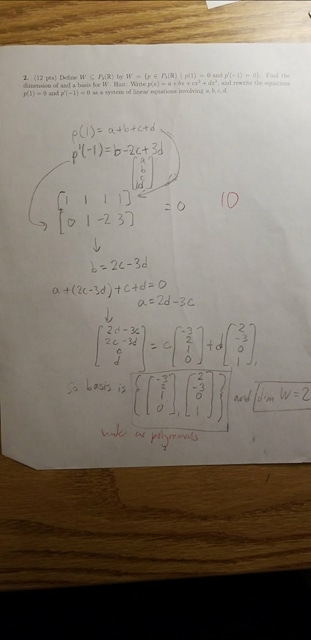 2. (12 pts) Define W ⊆ P₃(ℝ) by W = {p ∈ P₃(ℝ) | p(1) = 0 and p'(−1) = 0}. Find the
dimension of and a basis for W. Hint: Write p(x) = a + bx + cx² + dx³, and rewrite the equations
p(1) = 0 and p'(−1) = 0 as a system of linear equations involving a, b, c, d.
p(1) = a+b+c+d
p'(-1) = b-2c+3d
[a b c d]
[1 1 1 1]
[0 1 -2 3] = 0
10
↓
b = 2c-3d
a+(2c-3d)+c+d=0
a=2d-3c
↓
[2d-3c 2c-3d c d] = c[-3 2 1 0] + d[2 -3 0 1],
So basis is {[-3 2 1 0], [2 -3 0 1]} and dim W = 2
write as polynomials